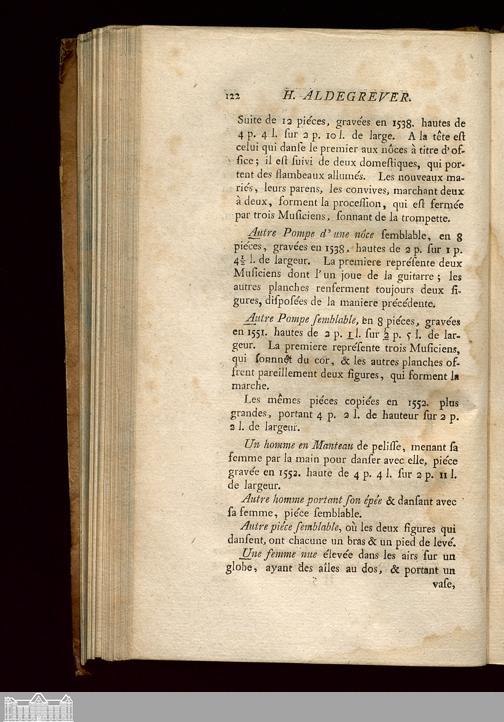 122 H. ALDEGREVER.
Suite de 12 piéces, gravées en 1538. hautes de
4 p. 4 l. ſur 2 p. 10 l. de large. A la tête eſt
celui qui danſe le premier aux nôces à titre d'of-
fice; il eſt ſuivi de deux domeſtiques, qui por-
tent des flambeaux allumés. Les nouveaux ma-
riés, leurs parens, les convives, marchant deux
à deux, forment la proceſſion, qui eſt fermée
par trois Muſiciens, ſonnant de la trompette.
Autre Pompe d'une nôce ſemblable, en 8
piéces, gravées en 1538. hautes de 2 p. ſur 1 p.
4½ l. de largeur. La premiere repréſente deux
Muſiciens dont l'un joue de la guitarre; les
autres planches renferment toujours deux fi-
gures, diſpoſées de la maniere précédente.
Autre Pompe ſemblable, en 8 piéces, gravées
en 1551. hautes de 2 p. 1 l. ſur 2 p. 5 l. de lar-
geur. La premiere repréſente trois Muſiciens,
qui ſonnnet du cor, & les autres planches of-
frent pareillement deux figures, qui forment la
marche.
Les mêmes piéces copiées en 1552. plus
grandes, portant 4 p. 2 l. de hauteur ſur 2 p.
2 l. de largeur.
Un homme en Manteau de peliſſe, menant ſa
femme par la main pour danſer avec elle, piéce
gravée en 1552. haute de 4 p. 4 l. ſur 2 p. 11 l.
de largeur.
Autre homme portant ſon épée & danſant avec
ſa femme, piéce ſemblable.
Autre piéce ſemblable, où les deux figures qui
danſent, ont chacune un bras & un pied de levé.
Une femme nue élevée dans les airs ſur un
globe, ayant des aîles au dos, & portant un
vaſe,